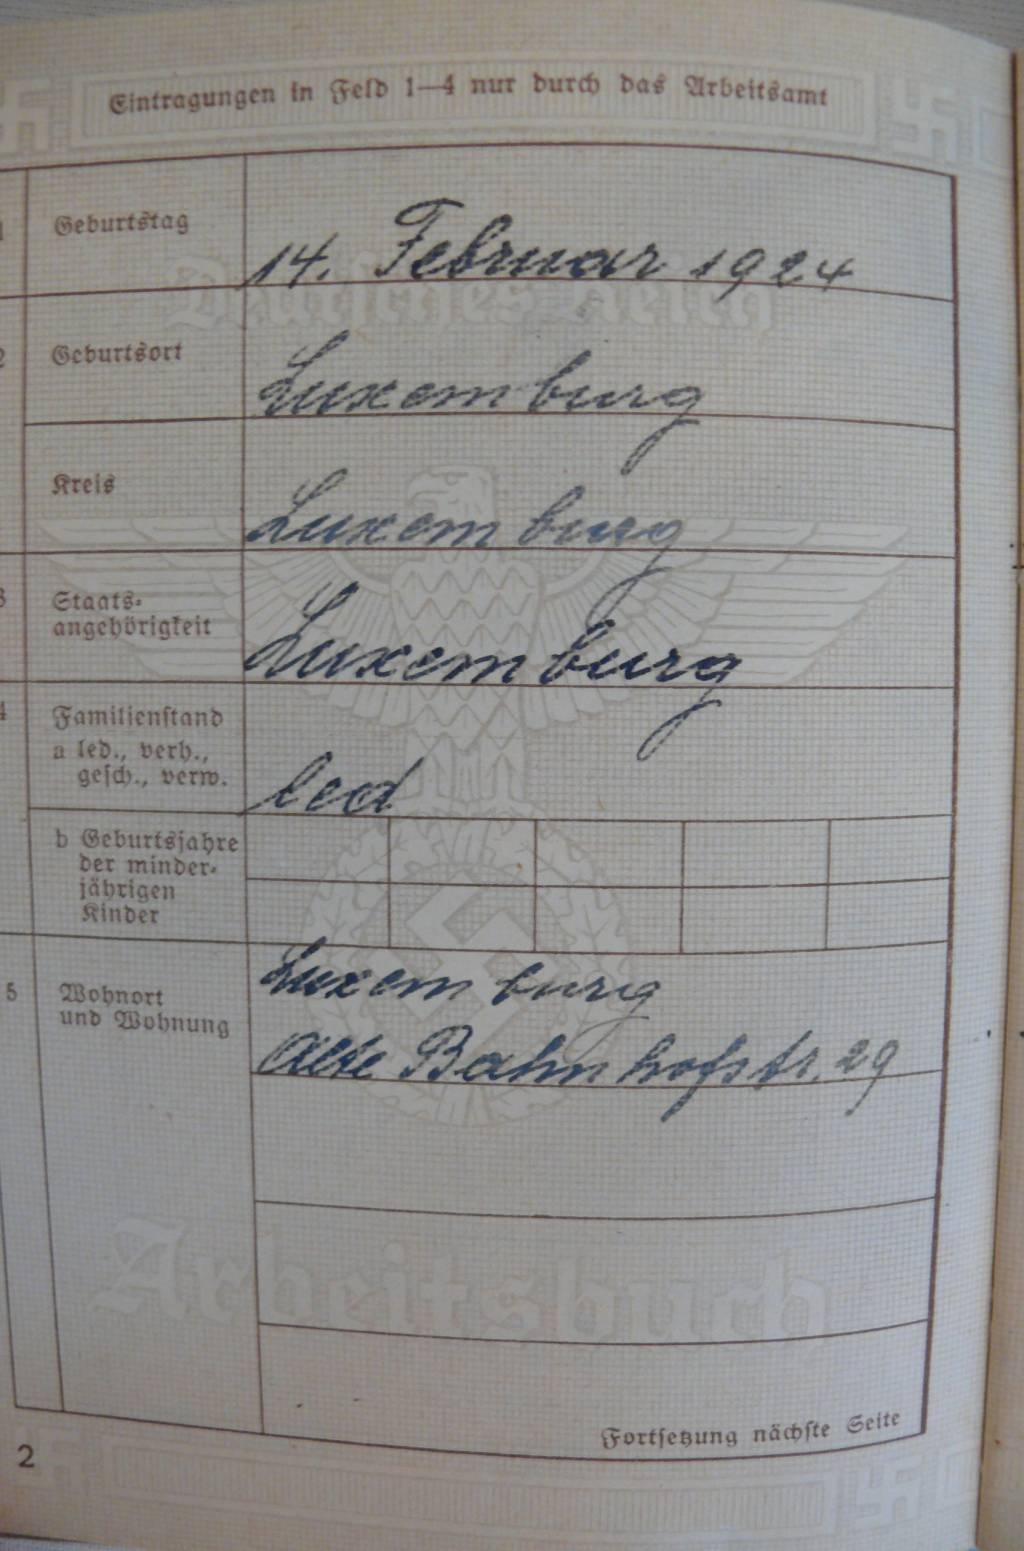 Eintragungen in Feld 1—4 nur durch das Arbeitsamt
1 Geburtstag 14. Februar 1924
Deutsches Reich
2 Geburtsort Luxemburg
Kreis Luxemburg
3 Staats-
angehörigkeit Luxemburg
4 Familienstand
a led., verh.,
gesch., verw. led
b Geburtsjahre
der minder-
jährigen
Kinder
5 Wohnort Luxemburg
und Wohnung Alte Bahnhofstr. 29
Arbeitsbuch
Fortsetzung nächste Seite
2